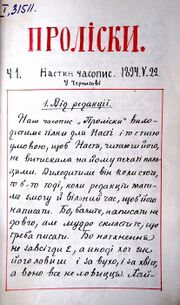 І, 31511.
ПРОЛІСКИ.
Ч 1. Настин часопис. 1894. V. 22.
У Чернигові
1. Від редакції.
Наш часопис „Проліски" вихо-
дитиме тілки для Насті і то с тією
умовою, щоб Настя, читаючи його,
не витискала на йому печаті поло-
цями. Виходитиме він коли схоч,
то б-то тоді, коли редакція мати-
ме змогу й вільний час, щоб його
написати. Бо, бачите, написати не
довго, але мудро скласти те, що
треба писати. Бо натхнення
не завсігди є, а иноді хоч як
його лови и за вухо, і за хвіт,
а воно все не ловицця. Хай-